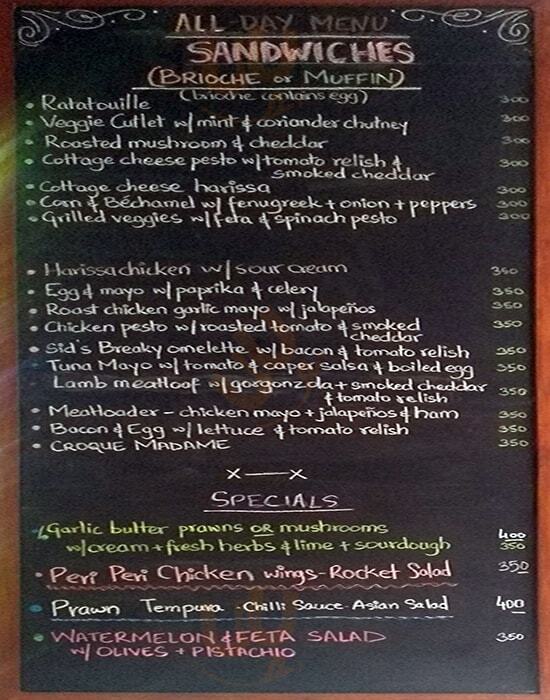 ALL-DAY MENU
SANDWICHES
(BRIOCHE or MUFFIN)
(brioche contains egg)
• Ratatouille 300
• Veggie Cutlet w/ mint & coriander chutney 300
• Roasted mushroom & cheddar 300
• Cottage cheese pesto w/ tomato relish & 300
smoked cheddar
• Cottage cheese harissa 300
• Corn & Béchamel w/ fenugreek + onion + peppers 300
• Grilled veggies w/ feta & spinach pesto 300
• Harissa chicken w/ sour cream 350
• Egg & mayo w/ paprika & celery 350
• Roast chicken garlic mayo w/ jalapeños 350
• Chicken pesto w/ roasted tomato & smoked 350
cheddar
• Sid's Breaky omelette w/ bacon & tomato relish 350
• Tuna Mayo w/ tomato & caper salsa & boiled egg 350
Lamb meatloaf w/ gorgonzola + smoked cheddar 350
& tomato relish
• Meatloader - chicken mayo + jalapeños & ham 350
• Bacon & Egg w/ lettuce & tomato relish 350
• CROQUE MADAME 350
x—x
SPECIALS
Garlic butter prawns OR mushrooms 400
w/ cream + fresh herbs & lime + sourdough 350
• Peri Peri Chicken wings - Rocket Salad 350
• Prawn Tempura - Chilli Sauce - Asian Salad 400
• WATERMELON & FETA SALAD 350
w/ OLIVES + PISTACHIO